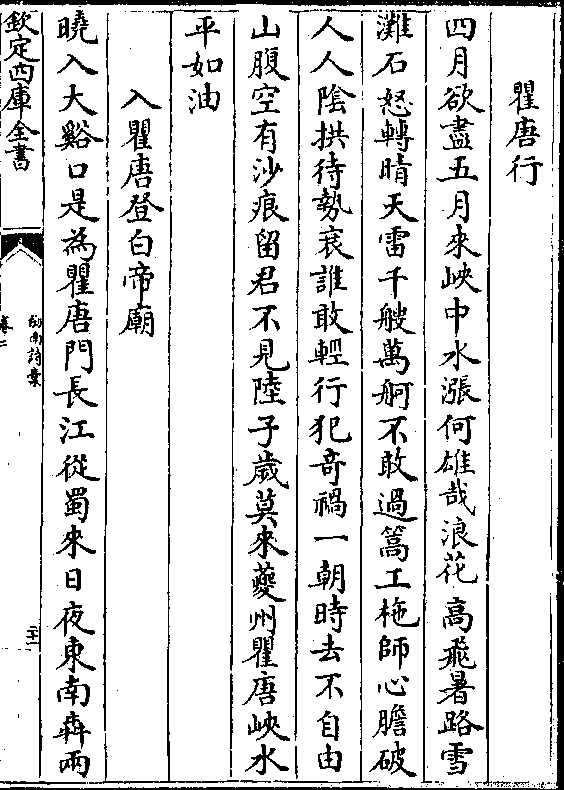 瞿唐行
四月欲盡五月來峽中水漲何雄哉浪花高飛暑路雪
灘石怒轉晴天雷千艘萬舸不敢過篙工柂師心膽破
人人陰拱待勢衰誰敢輕行犯奇禍一朝時去不自由
山腹空有沙痕留君不見陸子歲莫來夔州瞿唐峽水
平如油
入瞿唐登白帝廟
曉入大谿口是為瞿唐門長江從蜀來日夜東南犇兩
欽定四庫全書
劒南詩稾
卷二